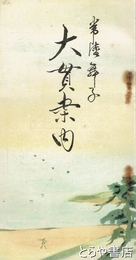 常陸舞子
大貫案内
とらや書店